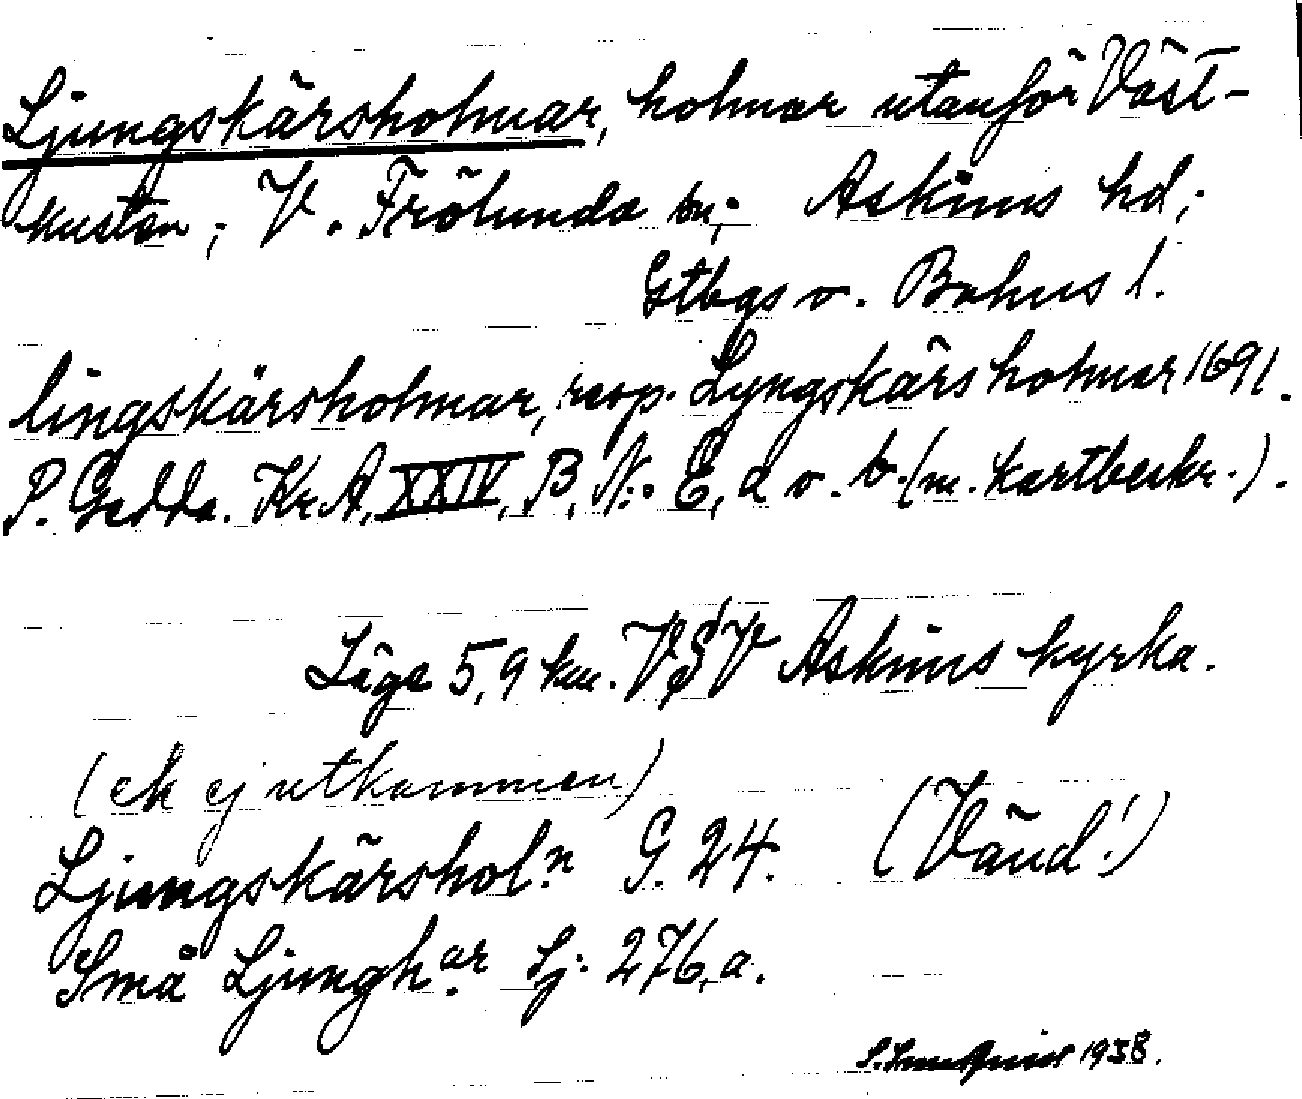 Ljungskärsholmar, holmar utanför Väst-
kusten; V. Frölunda sn; Askims hd;
Gtbgs o. Bohus l.
lingskärsholmar, resp. Lyngskärsholmar 1691.
P. Gedda. Kr.A, XXIV, B, N:o E, a o. b. (m. kartbeskr.).
Läge 5,9 km. VSV Askims kyrka.
(ek ej utkommen)
Ljungskärshol.n G. 24. (Vänd!)
Små Ljungh.ar Sj. 276,a.
1938.